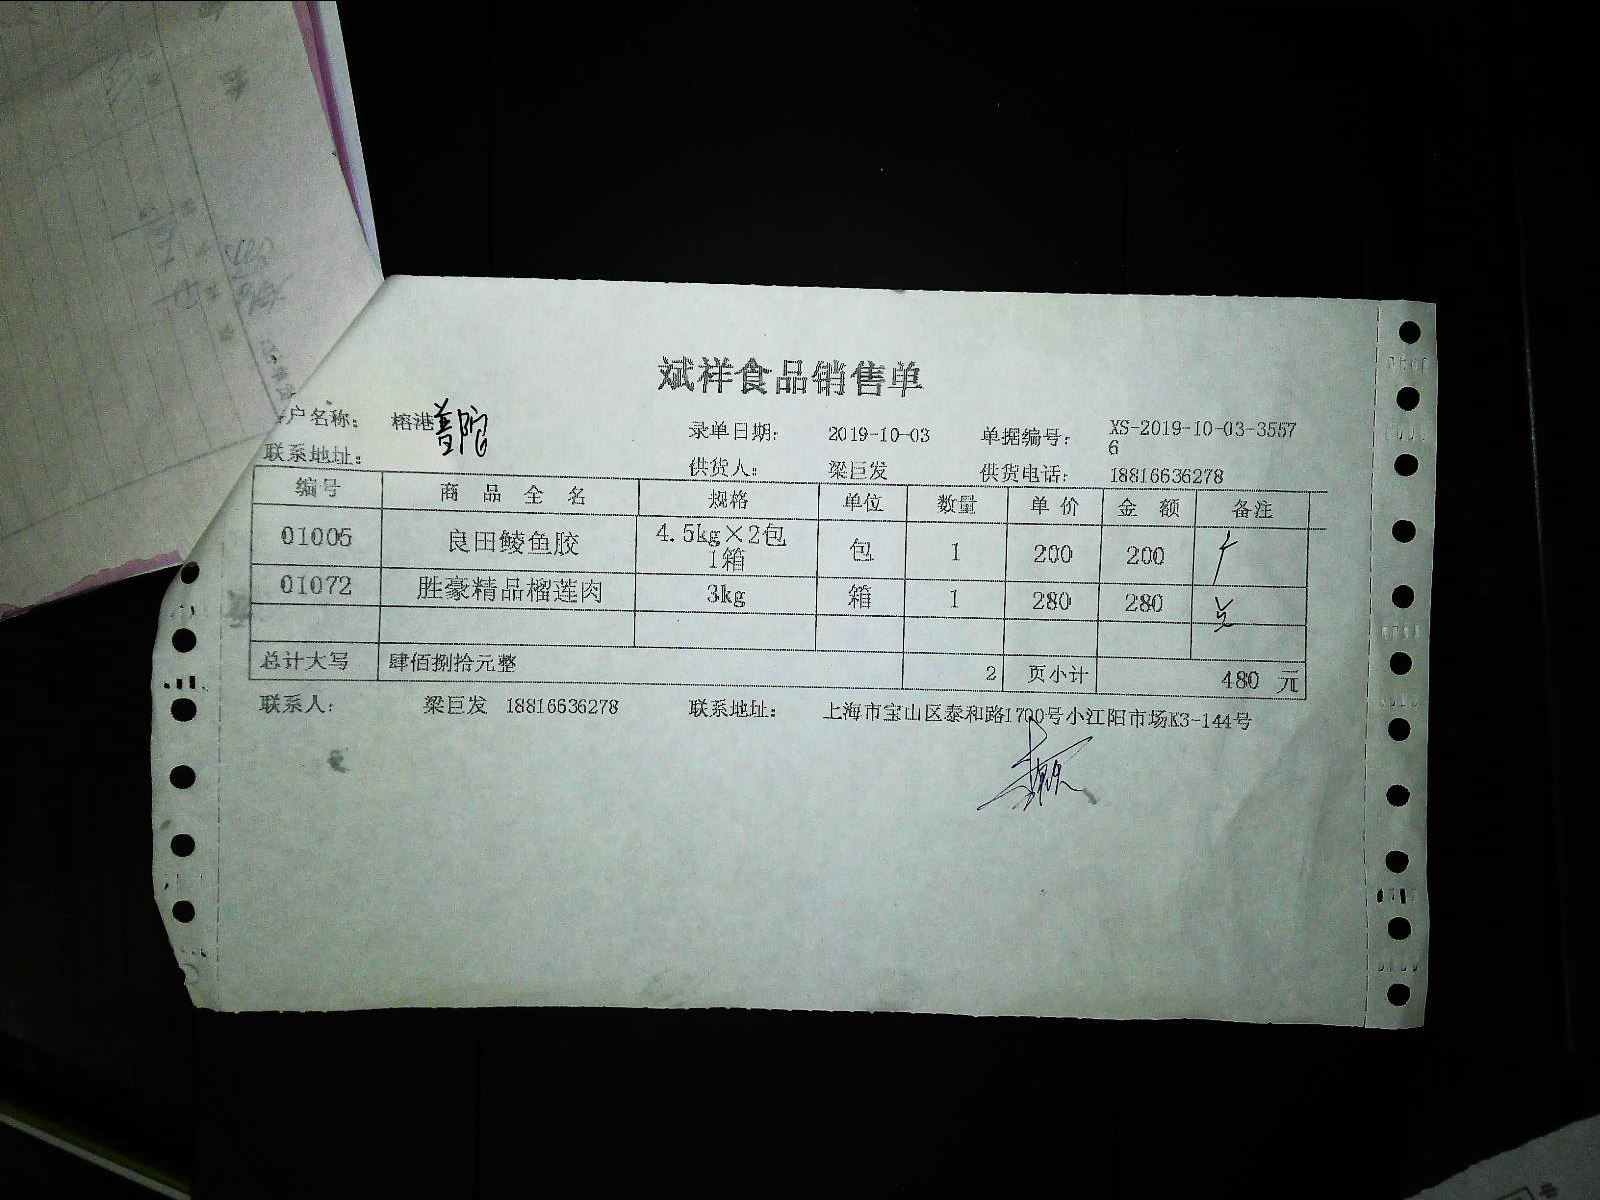 斌祥食品销售单
户名称： 榕港普陀 录单日期： 2019-10-03 单据编号： XS-2019-10-03-3557
6
联系地址： 供货人： 梁巨发 供货电话： 18816636278
编号 商 品 全 名 规格 单位 数量 单 价 金 额 备注
01005 良田鲮鱼胶 4.5kg×2包 包 1 200 200
1箱
01072 胜豪精品榴莲肉 3kg 箱 1 280 280
总计大写 肆佰捌拾元整 2 页小计 480 元
联系人： 梁巨发 18816636278 联系地址： 上海市宝山区泰和路1700号小江阳市场K3-144号